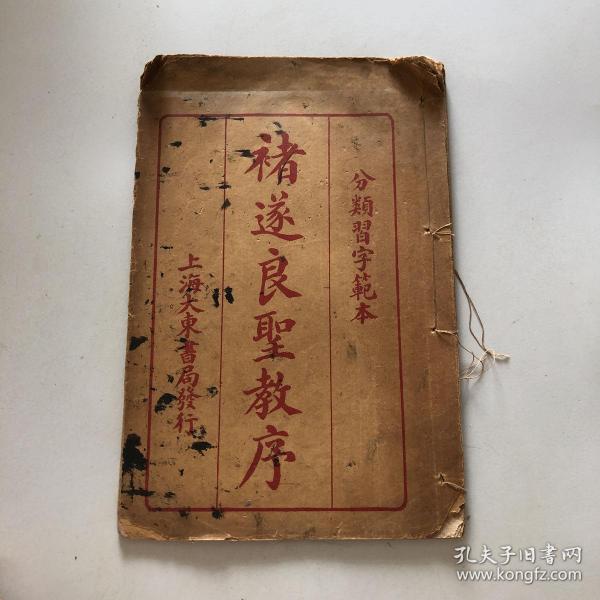 分類習字範本
褚遂良聖教序
上海大東書局發行
孔夫子旧书网
www.kongfz.com